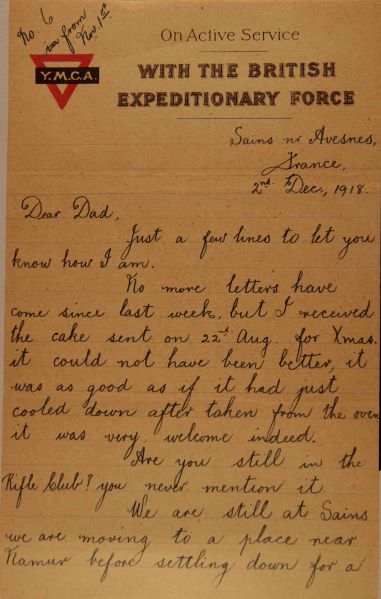 No. 6
from
Nov. 1st
Y.M.C.A.
On Active Service
WITH THE BRITISH
EXPEDITIONARY FORCE
Sains nr Avesnes,
France,
2nd Dec., 1918.
Dear Dad,
Just a few lines to let you
know how I am.
No more letters have
come since last week, but I received
the cake sent on 22nd Aug. for Xmas.
it could not have been better, it
was as good as if it had just
cooled down after taken from the oven
it was very welcome indeed.
Are you still in the
Rifle Club? you never mention it
We are still at Sains
we are moving to a place near
Namur before settling down for a